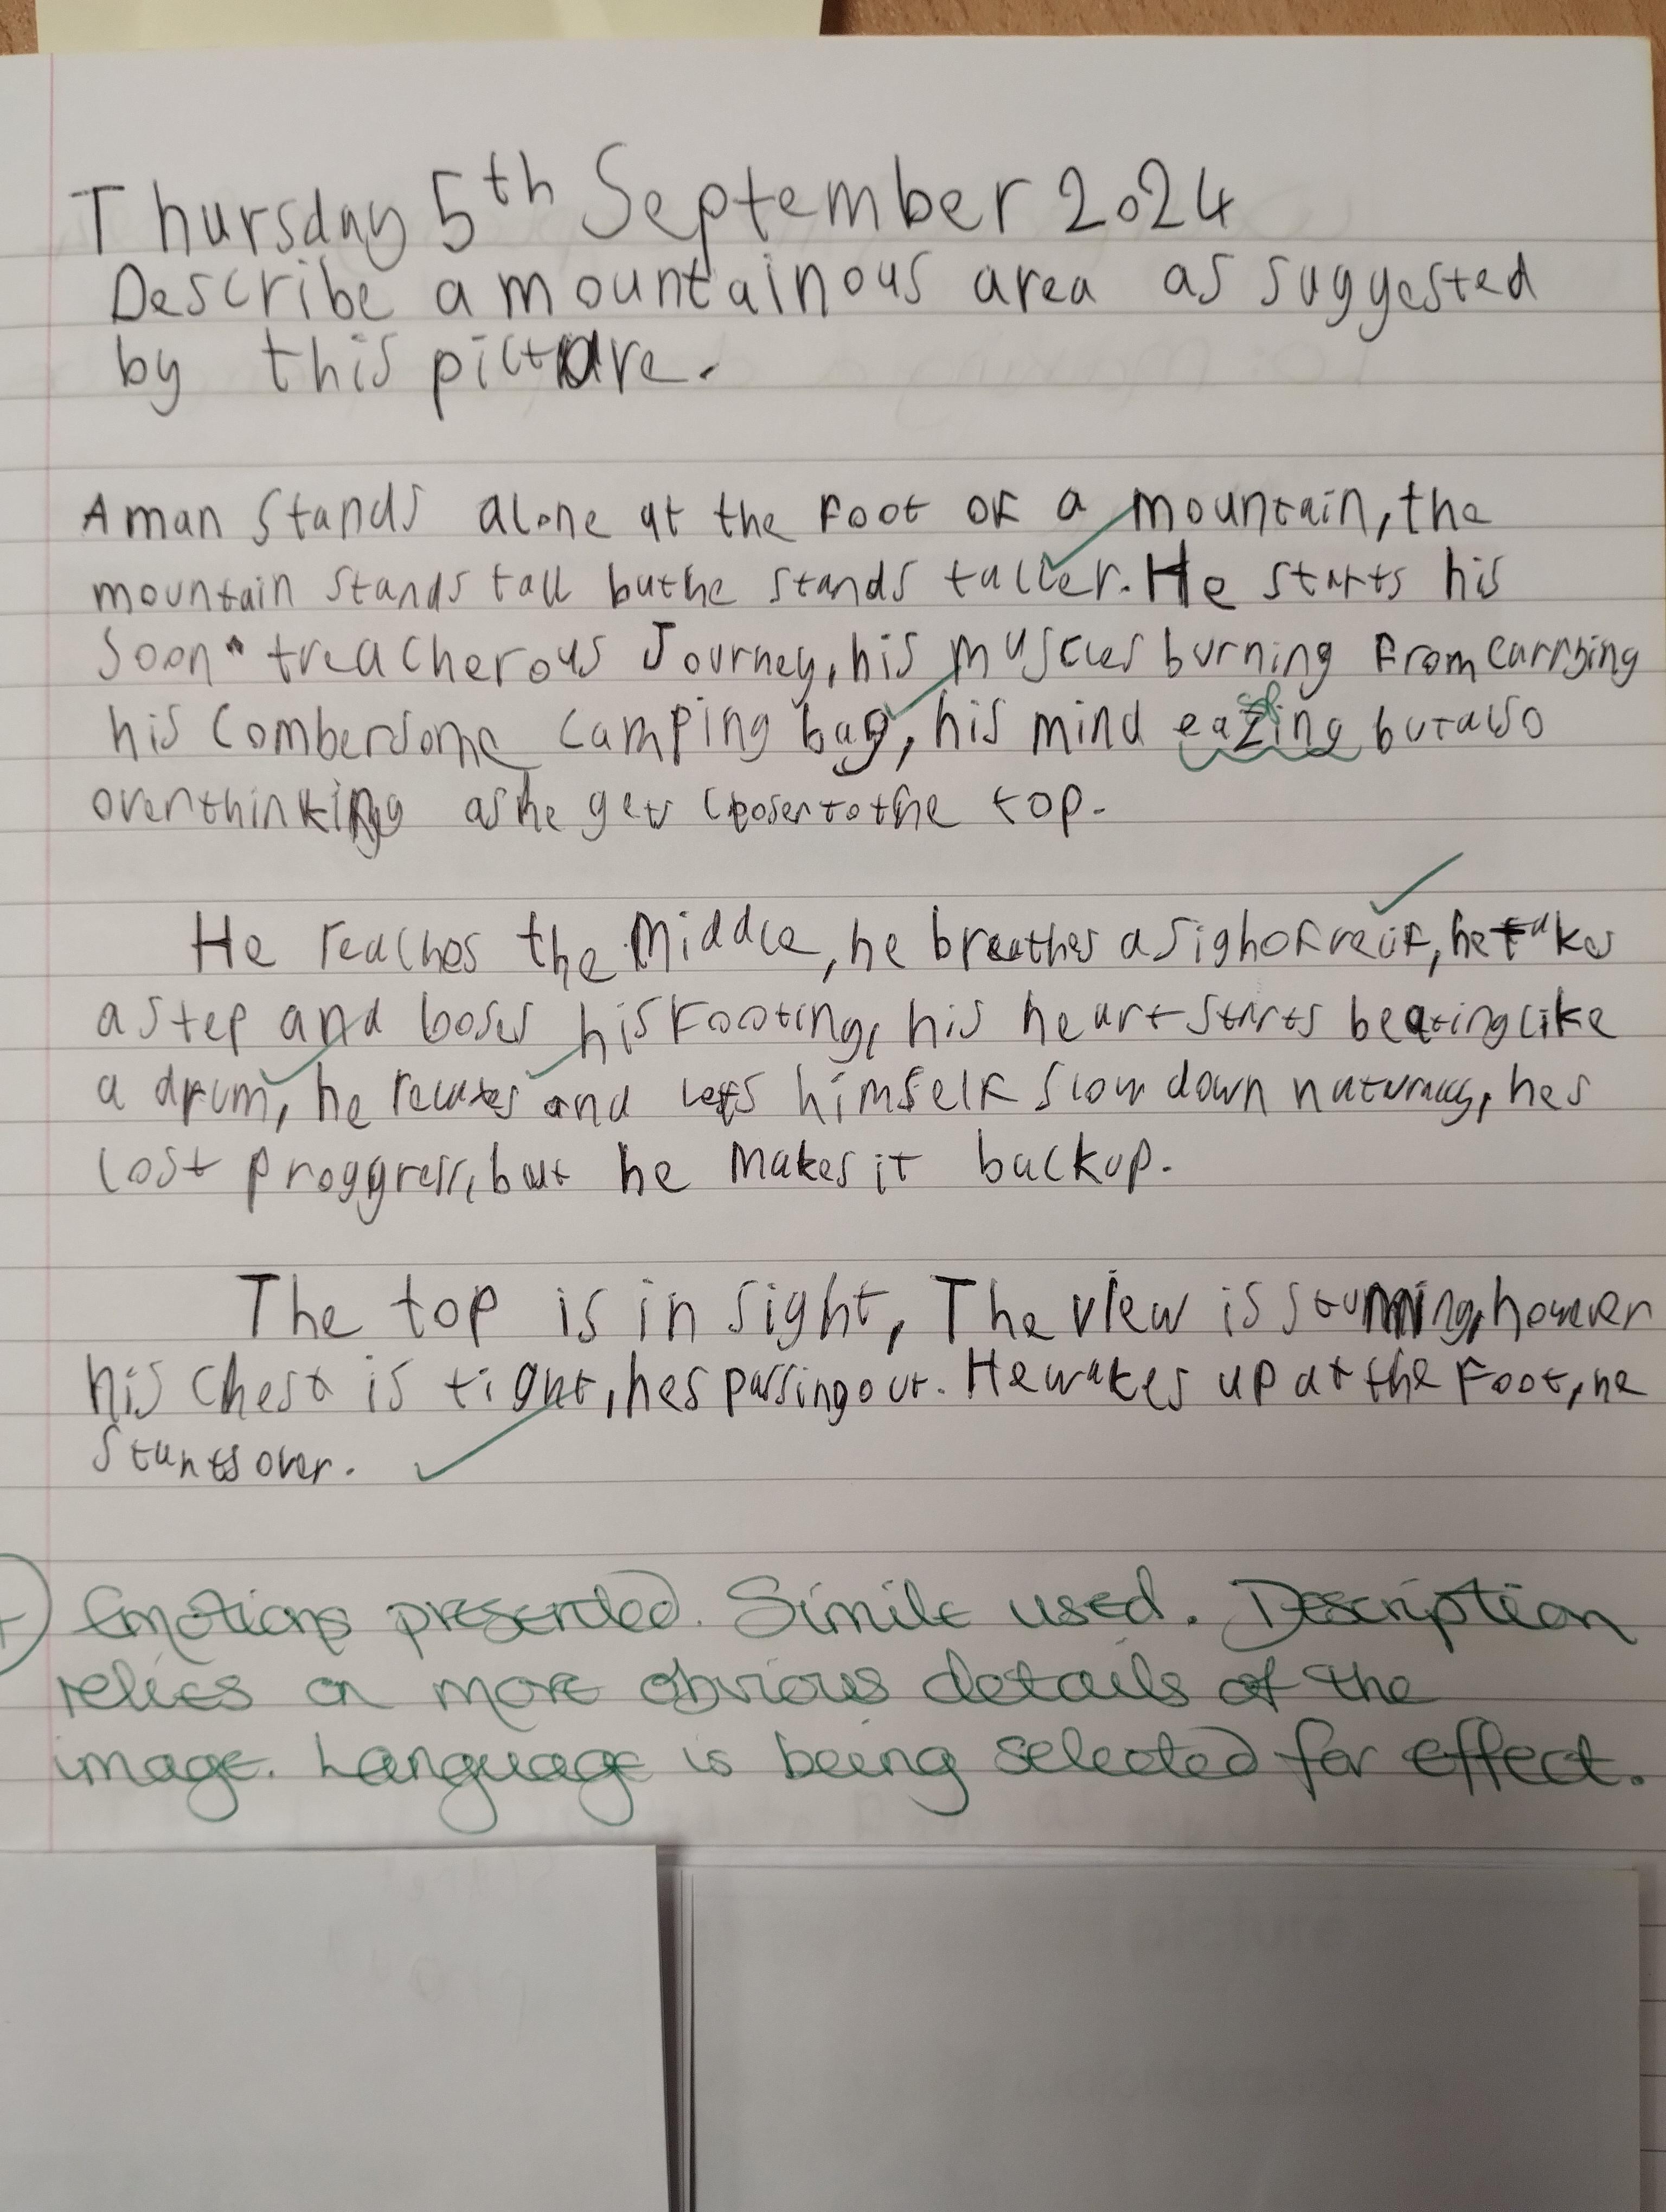 Thursday 5th September 2024
Describe a mountainous area as suggested
by this picture.
A man stands alone at the foot of a mountain, the
mountain stands tall but he stands taller. He starts his
soon treacherous Journey, his muscles burning from carrying
his combersome camping bag, his mind eazing but also
sp
overthinking as he gets closer to the top.
He reaches the middle, he breathes a sigh of relif, he takes
a step and loses his footing, his heart starts beating like
a drum, he relaxes and lets himself slow down naturally, hes
lost proggress, but he makes it back up.
The top is in sight, The view is stunning, however
his chest is tight, hes passing out. He wakes up at the foot, he
starts over.
+ Emotions presented. Simile used. Description
relies on more obvious details of the
image. Language is being selected for effect.